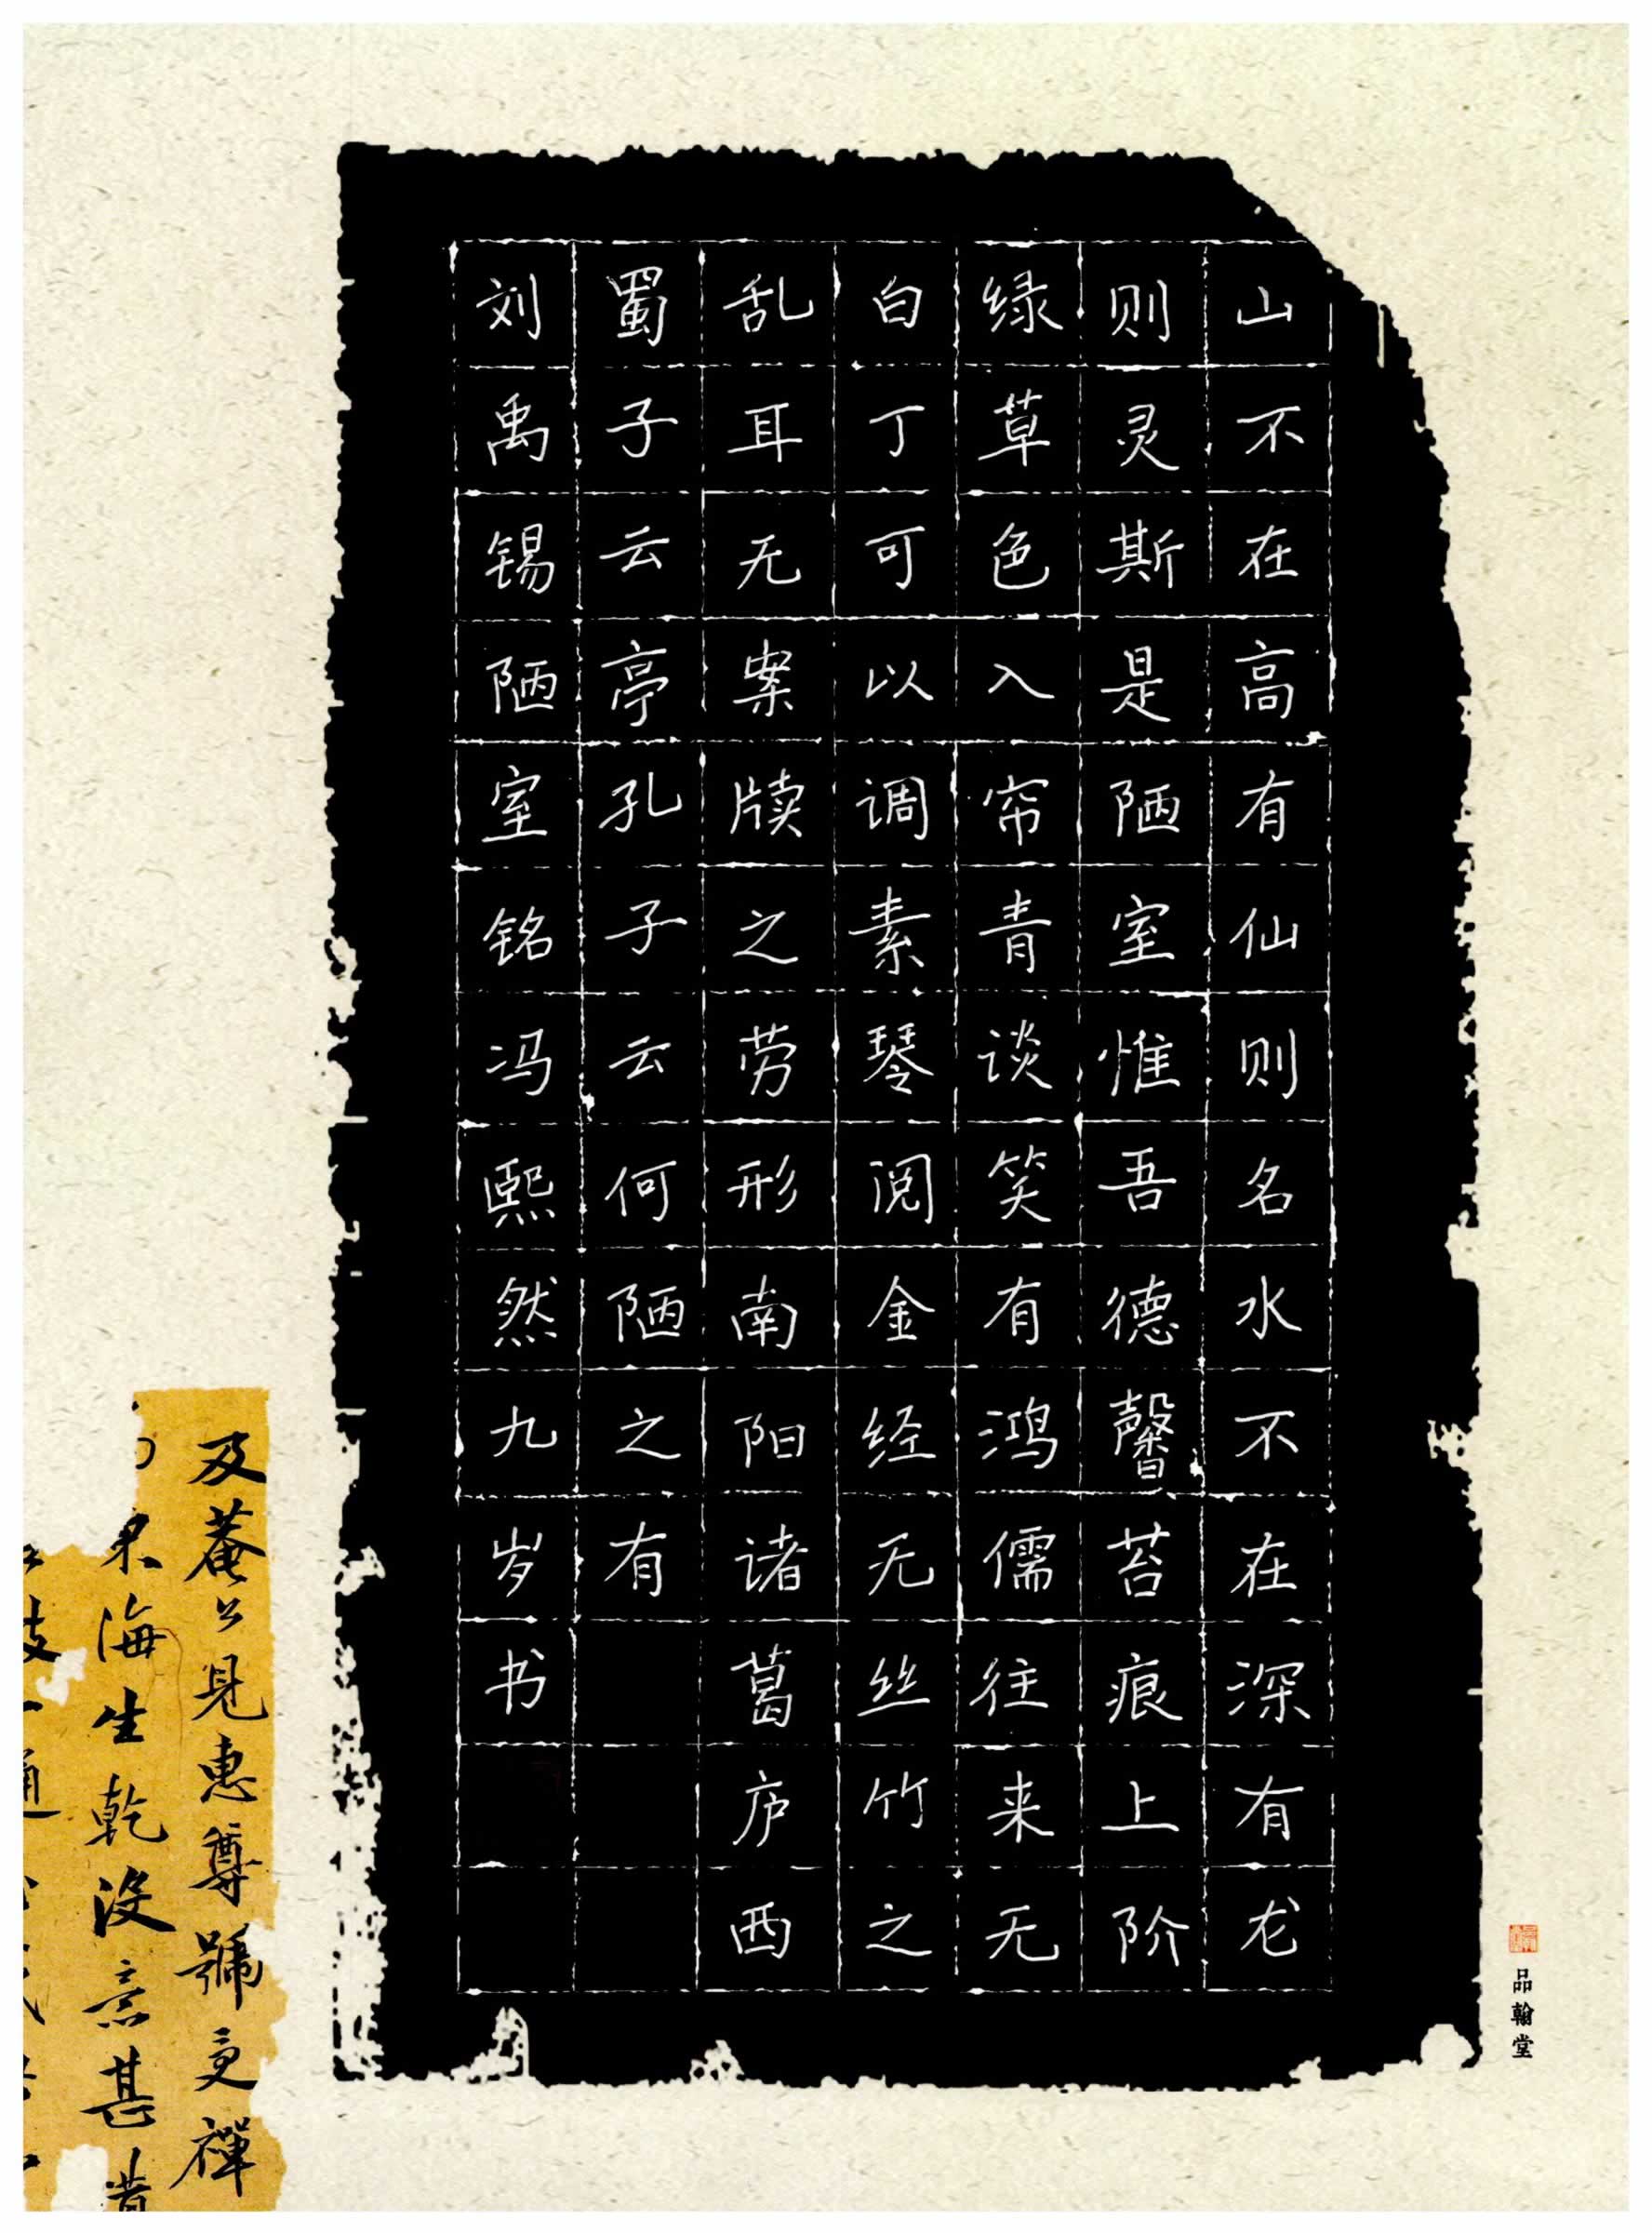 山不在高有仙则名水不在深有龙
则灵斯是陋室惟吾德馨苔痕上阶
绿草色入帘青谈笑有鸿儒往来无
白丁可以调素琴阅金经无丝竹之
乱耳无案牍之劳形南阳诸葛庐西
蜀子云亭孔子云何陋之有
刘禹锡陋室铭冯熙然九岁书
品翰堂
及菴公見惠尊號更禪
海生乾没意甚
通